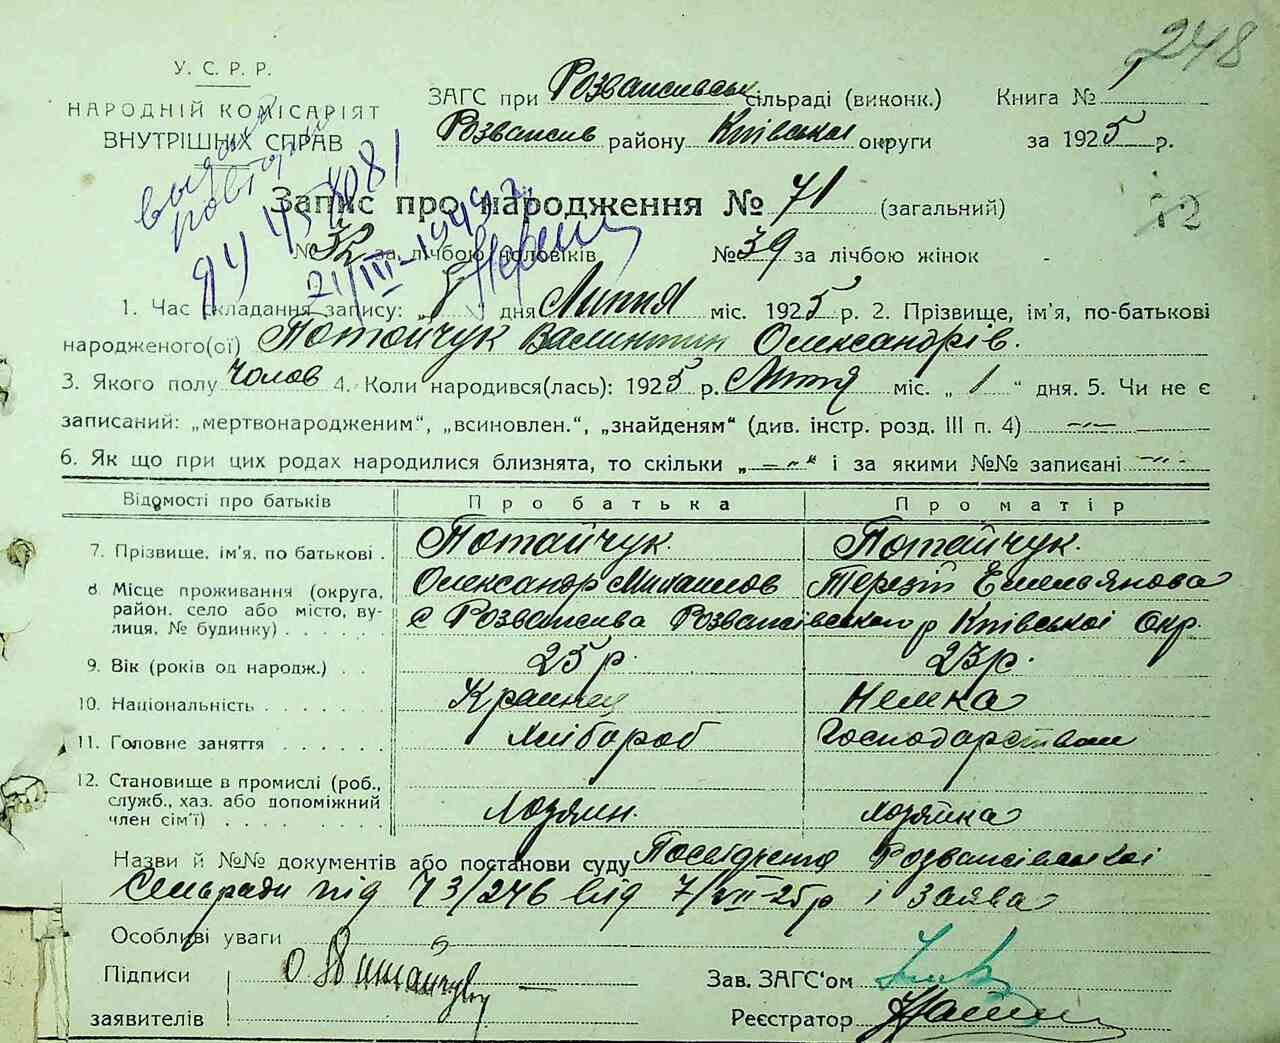 248
У. С. Р. Р.
НАРОДНІЙ КОМІСАРІЯТ
ВНУТРІШНІХ СПРАВ
ЗАГС при Розважівськ сільраді (виконк.) Книга №
Розважив району Київської округи за 1925 р.
Запис про народження № 71 (загальний)
72
№ 32 за лічбою чоловіків № 39 за лічбою жінок
21/III-1944 г.
1. Час складання запису: „8" дня Липня міс. 1925 р. 2. Прізвище, ім'я, по-батькові
народженого(ої) Потайчук Валинтин Олександрів.
3. Якого полу чолов 4. Коли народився(лась): 1925 р. Липня міс. „1" дня. 5. Чи не є
записаний: „мертвонародженим", „всиновлен.", „знайденям" (див. інстр. розд. III п. 4) —"—
6. Як що при цих родах народилися близнята, то скільки „—"—" і за якими №№ записані —"—
Відомості про батьків Про батька Про матір
7. Прізвище, ім'я, по батькові . Потайчук. Потайчук.
8. Місце проживання (округа, Олександр Михаилов Терезія Емельянова
район, село або місто, ву- с Розважива Розважівського р Київської Окр.
лиця, № будинку) . . . . .
9. Вік (років од народж.) . . 25 р. 23 р.
10. Національність . . . . . . Країнец Немка
11. Головне заняття . . . . . . Хлібороб Господарством
12. Становище в промислі (роб.,
служб., хаз. або допоміжний Хозяин. хозяйка
член сім'ї) . . . . . . . . .
Назви й №№ документів або постанови суду Посвідченя Розважівської
Сельради під Ч 3/246 від 7/VII-25 р і заява
Особливі уваги
Підписи О Потайчук
заявителів
Зав. ЗАГС'ом
Реєстратор